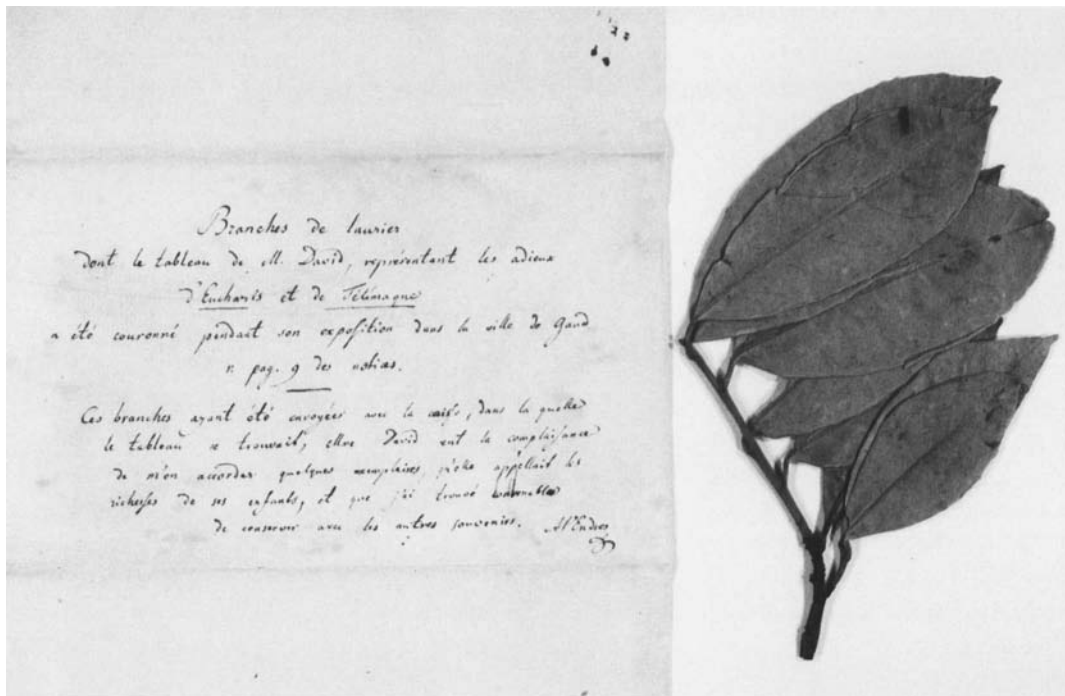 Branches de laurier
dont le tableau de M. David, représentant les adieux
d'Eucharis et de Télémaque
a été couronné pendant son exposition dans la ville de Gand
v. pag. 9 des notices.
Ces branches ayant été envoyées avec la caisse, dans la quelle
le tableau se trouvait, Mme David eut la complaisance
de m'en accorder quelques exemplaires, qu'elle appellait les
richesses de ses enfants, et que j'ai trouvé convenable
de conserver avec les autres souvenirs.